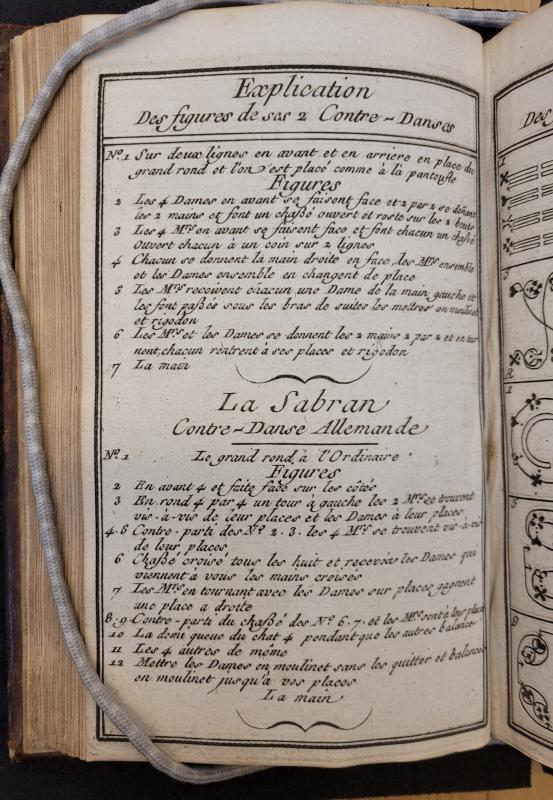 Explication
Des figures de ses 2 Contre-Danses
No. 1 Sur deux lignes en avant et en arriere en place du
grand rond et l'on s'est placé comme à la pantoufle
Figures
2 Les 4 Dames en avant se faisent face et 2 par 2 se donant
les 2 mains et font un chaßé ouvert et reste sur les 2 bouts
3 Les 4 Mrs en avant se faisent face et font chacun un chaßé
ouvert chacun à un coin sur 2 lignes
4 Chacun se donnent la main droite en face, les Mrs ensemble
et les Dames ensemble en changent de place
5 Les Mrs recoivent chacun une Dame de la main gauche et
les font paßés sous les bras de suites les mettres en moulinet
et rigodon
6 Les Mrs et les Dames se donnent les 2 mains 2 par 2 et en tour
nent, chacun rentrent à ses places et rigodon
7 La main
La Sabran
Contre-Danse Allemande
No. 1 Le grand rond à l'Ordinaire
Figures
2 En avant 4 et faite face sur les côtés
3 En rond 4 par 4 un tour à gauche les 2 Mrs se trouvent
vis-à-vis de leur places et les Dames à leur places
4.5 Contre-parti des No. 2.3. les 4 Mrs se trouvent vis-à-vis
de leur places,
6 Chaßé croisé tous les huit et recevés les Dames qui
viennent à vous les mains croisés
7 Les Mrs en tournant avec les Dames sur places gagnent
une place a droite
8.9 Contre-parti du chaßé des No. 6.7. et les Mrs sont à leur places
10 La demi queue du chat 4 pendant que les autres balance
11 Les 4 autres de même
12 Mettre les Dames en moulinet sans les quitter et balances
en moulinet jusqu'a vos places
La main
Des
1
3
R
1
5
9